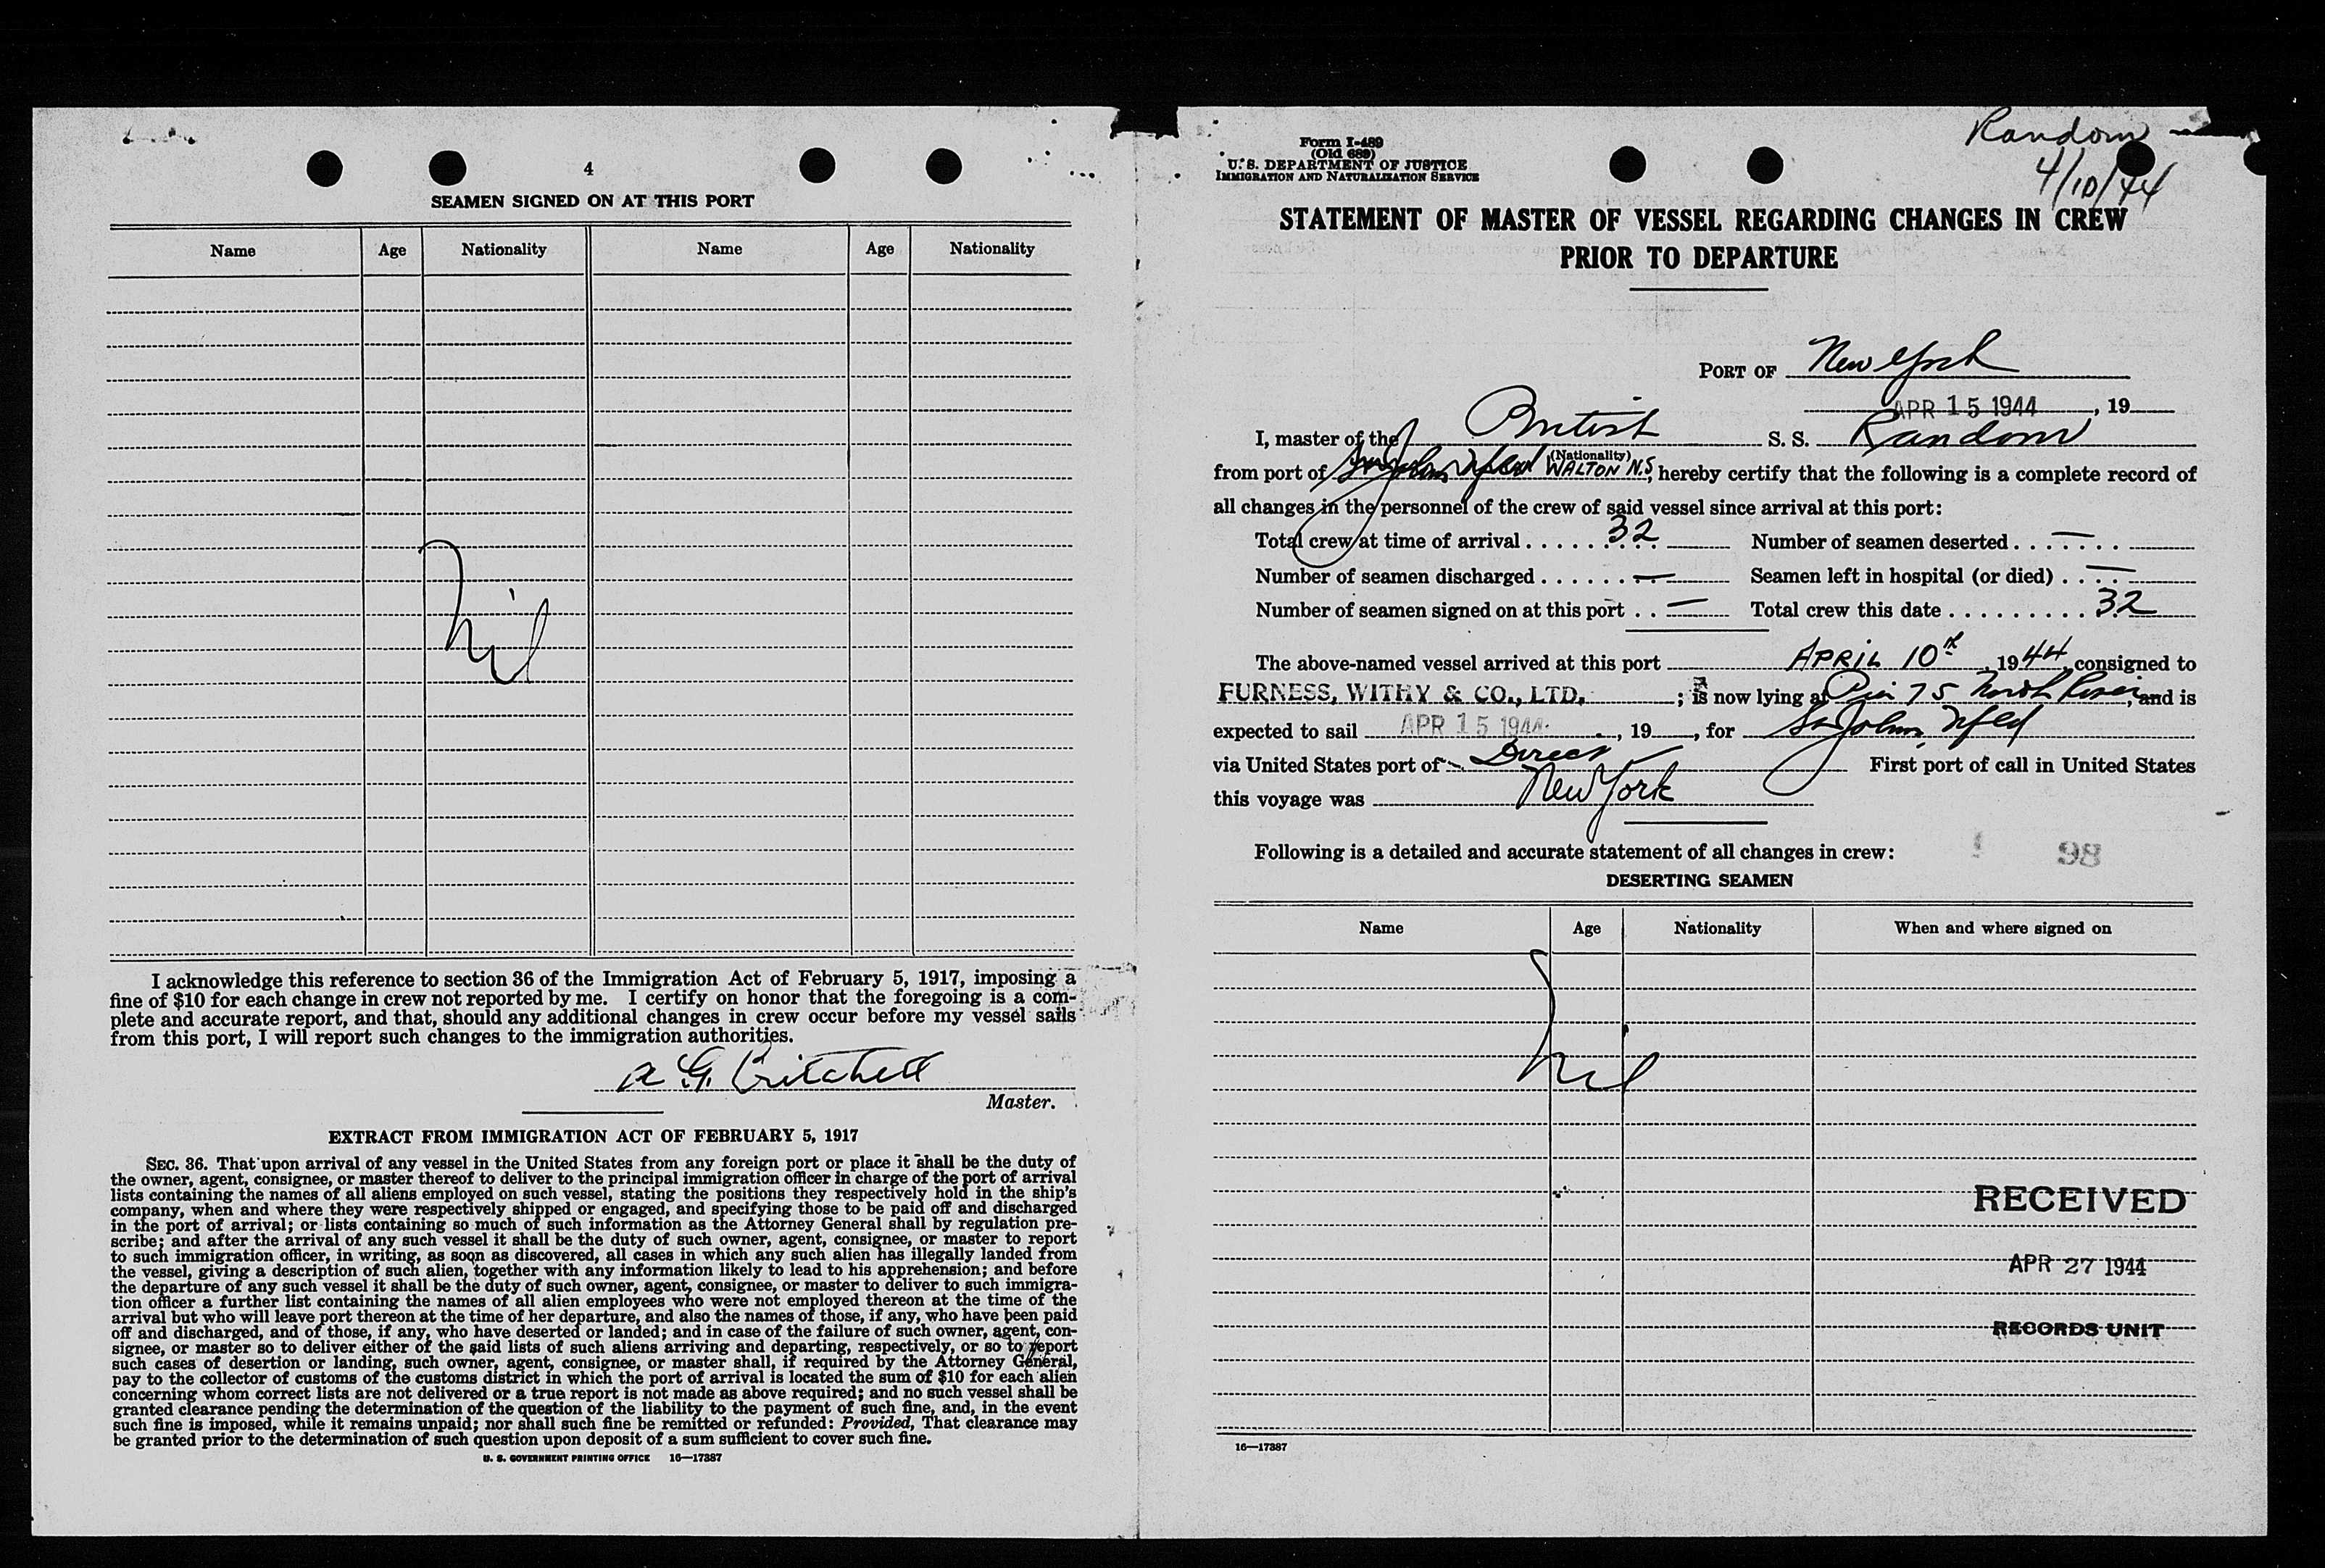 4
SEAMEN SIGNED ON AT THIS PORT
Name Age Nationality Name Age Nationality
Nil
I acknowledge this reference to section 36 of the Immigration Act of February 5, 1917, imposing a
fine of $10 for each change in crew not reported by me. I certify on honor that the foregoing is a com-
plete and accurate report, and that, should any additional changes in crew occur before my vessel sails
from this port, I will report such changes to the immigration authorities.
A G. Critchell
Master.
EXTRACT FROM IMMIGRATION ACT OF FEBRUARY 5, 1917
SEC. 36. That upon arrival of any vessel in the United States from any foreign port or place it shall be the duty of
the owner, agent, consignee, or master thereof to deliver to the principal immigration officer in charge of the port of arrival
lists containing the names of all aliens employed on such vessel, stating the positions they respectively hold in the ship's
company, when and where they were respectively shipped or engaged, and specifying those to be paid off and discharged
in the port of arrival; or lists containing so much of such information as the Attorney General shall by regulation pre-
scribe; and after the arrival of any such vessel it shall be the duty of such owner, agent, consignee, or master to report
to such immigration officer, in writing, as soon as discovered, all cases in which any such alien has illegally landed from
the vessel, giving a description of such alien, together with any information likely to lead to his apprehension; and before
the departure of any such vessel it shall be the duty of such owner, agent, consignee, or master to deliver to such immigra-
tion officer a further list containing the names of all alien employees who were not employed thereon at the time of the
arrival but who will leave port thereon at the time of her departure, and also the names of those, if any, who have been paid
off and discharged, and of those, if any, who have deserted or landed; and in case of the failure of such owner, agent, con-
signee, or master so to deliver either of the said lists of such aliens arriving and departing, respectively, or so to report
such cases of desertion or landing, such owner, agent, consignee, or master shall, if required by the Attorney General,
pay to the collector of customs of the customs district in which the port of arrival is located the sum of $10 for each alien
concerning whom correct lists are not delivered or a true report is not made as above required; and no such vessel shall be
granted clearance pending the determination of the question of the liability to the payment of such fine, and, in the event
such fine is imposed, while it remains unpaid; nor shall such fine be remitted or refunded: Provided, That clearance may
be granted prior to the determination of such question upon deposit of a sum sufficient to cover such fine.
U. S. GOVERNMENT PRINTING OFFICE 16—17387
Random
4/10/44
Form I-489
(Old 689)
U. S. DEPARTMENT OF JUSTICE
IMMIGRATION AND NATURALIZATION SERVICE
STATEMENT OF MASTER OF VESSEL REGARDING CHANGES IN CREW
PRIOR TO DEPARTURE
PORT OF New York
APR 15 1944, 19
I, master of the British S. S. Random
(Nationality)
from port of St Johns Nfld WALTON N.S, hereby certify that the following is a complete record of
all changes in the personnel of the crew of said vessel since arrival at this port:
Total crew at time of arrival . . . . . . 32 Number of seamen deserted . . . — . . .
Number of seamen discharged . . . . . . — Seamen left in hospital (or died) . . —
Number of seamen signed on at this port . . — Total crew this date . . . . . . . . . 32
The above-named vessel arrived at this port APRIL 10th, 1944, consigned to
FURNESS, WITHY & CO., LTD. ; is now lying at Pier 75 North River, and is
expected to sail APR 15 1944, 19, for St Johns, Nfld
via United States port of Direct First port of call in United States
this voyage was New York
Following is a detailed and accurate statement of all changes in crew:
98
DESERTING SEAMEN
Name Age Nationality When and where signed on
Nil
RECEIVED
APR 27 1944
RECORDS UNIT
16—17387